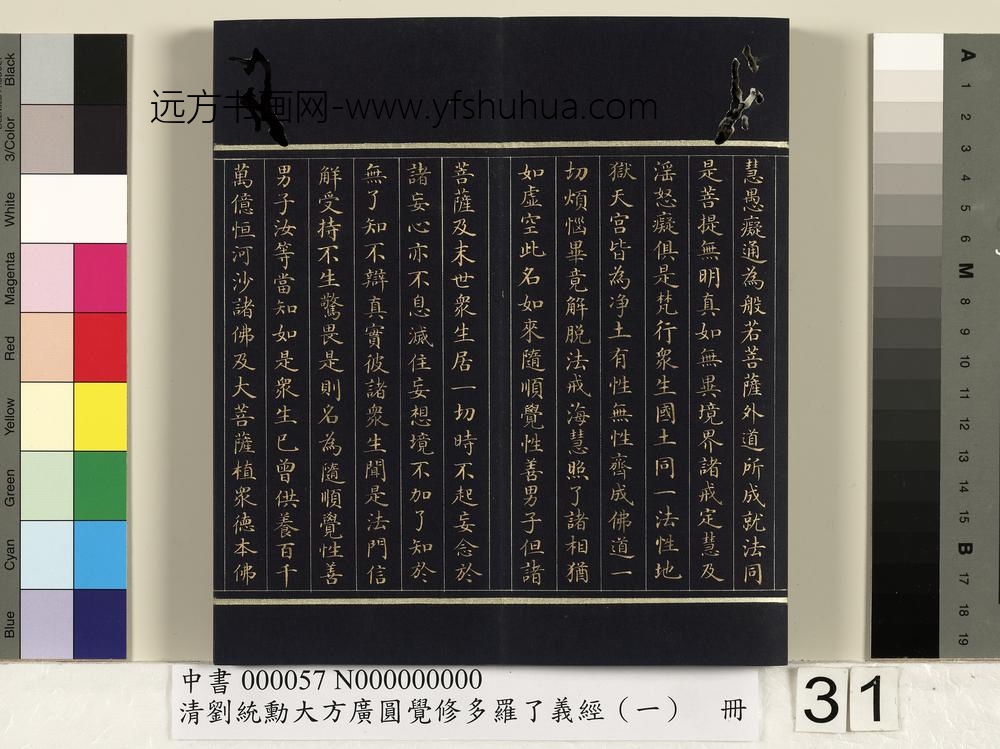 远方书画网-www.yfshuhua.com
慧愚癡通為般若菩薩外道所成就法同
是菩提無明真如無異境界諸戒定慧及
淫怒癡俱是梵行衆生國土同一法性地
獄天宮皆為净土有性無性齊成佛道一
切煩惱畢竟解脱法戒海慧照了諸相猶
如虛空此名如來隨順覺性善男子但諸
菩薩及末世衆生居一切時不起妄念於
諸妄心亦不息滅住妄想境不加了知於
無了知不辯真實彼諸衆生聞是法門信
解受持不生驚畏是則名為隨順覺性善
男子汝等當知如是衆生已曾供養百千
萬億恒河沙諸佛及大菩薩植衆德本佛
中書 000057 N000000000
清劉統勳大方廣圓覺修多羅了義經（一） 冊
31
Black
3/Color
White
Magenta
Red
Yellow
Green
Cyan
Blue
A
1
2
3
4
5
6
M
8
9
10
11
12
13
14
15
B
17
18
19